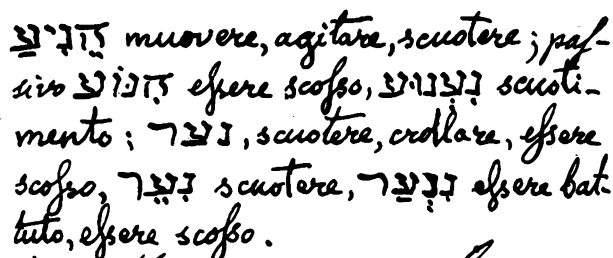 הֵנִיעַ muovere, agitare, scuotere; paſ-
sivo הִנוֹעַ eſsere scoſso, נִעְנוּעַ scuoti-
mento; נער, scuotere, crollare, eſsere
scoſso, נִעֵר scuotere, נִנְעַר eſsere bat-
tuto, eſsere scoſso.